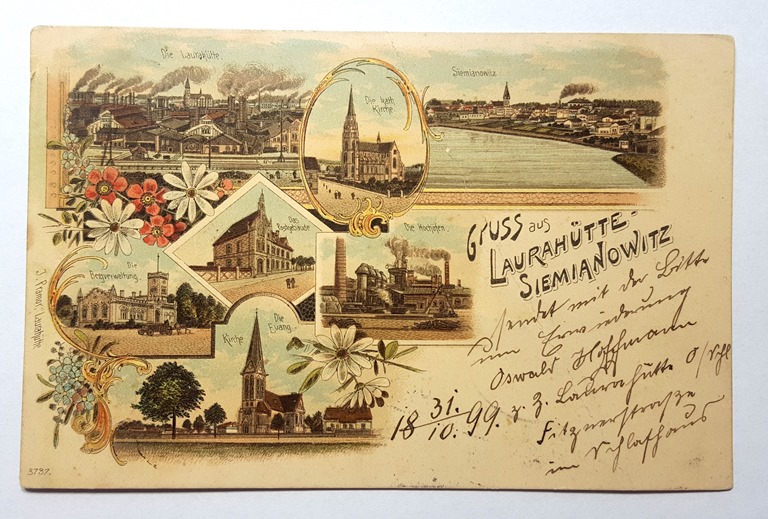 Die Laurahütte.
Die kath.
Kirche
Siemianowitz
Das
Postgebäude
Die Hochöfen.
Die
Bergverwaltung.
Die
Evang.
Kirche
GRUSS aus
LAURAHÜTTE-
SIEMIANOWITZ
sendet mit der Bitte
um Erwiederung
Oswald Hoffmann
z. Z. Laurahütte O/Schl
Fitznerstraße
im Schlafhaus
31.
18 10. 99.
Laurahütte.
3737.